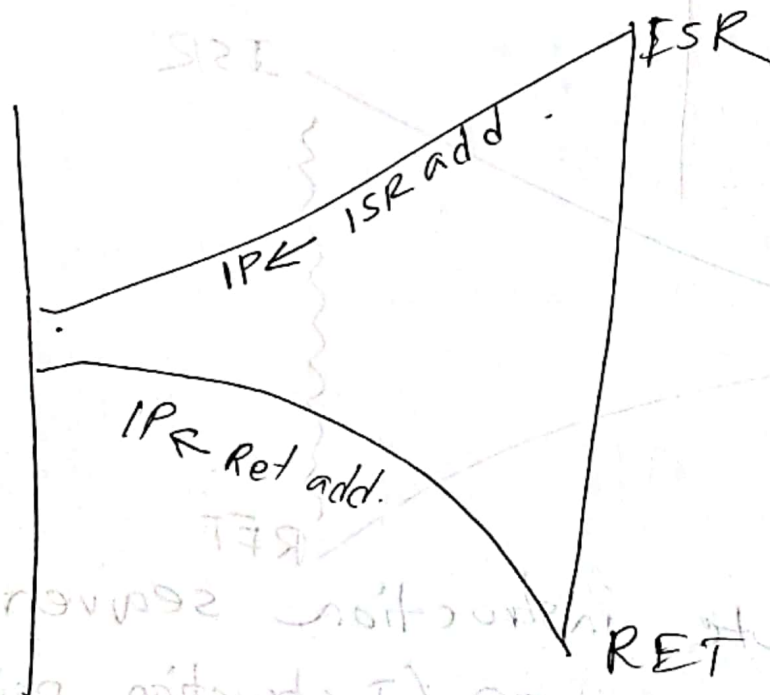 ISR
IP ← ISR add.
IP ← Ret add.
RET